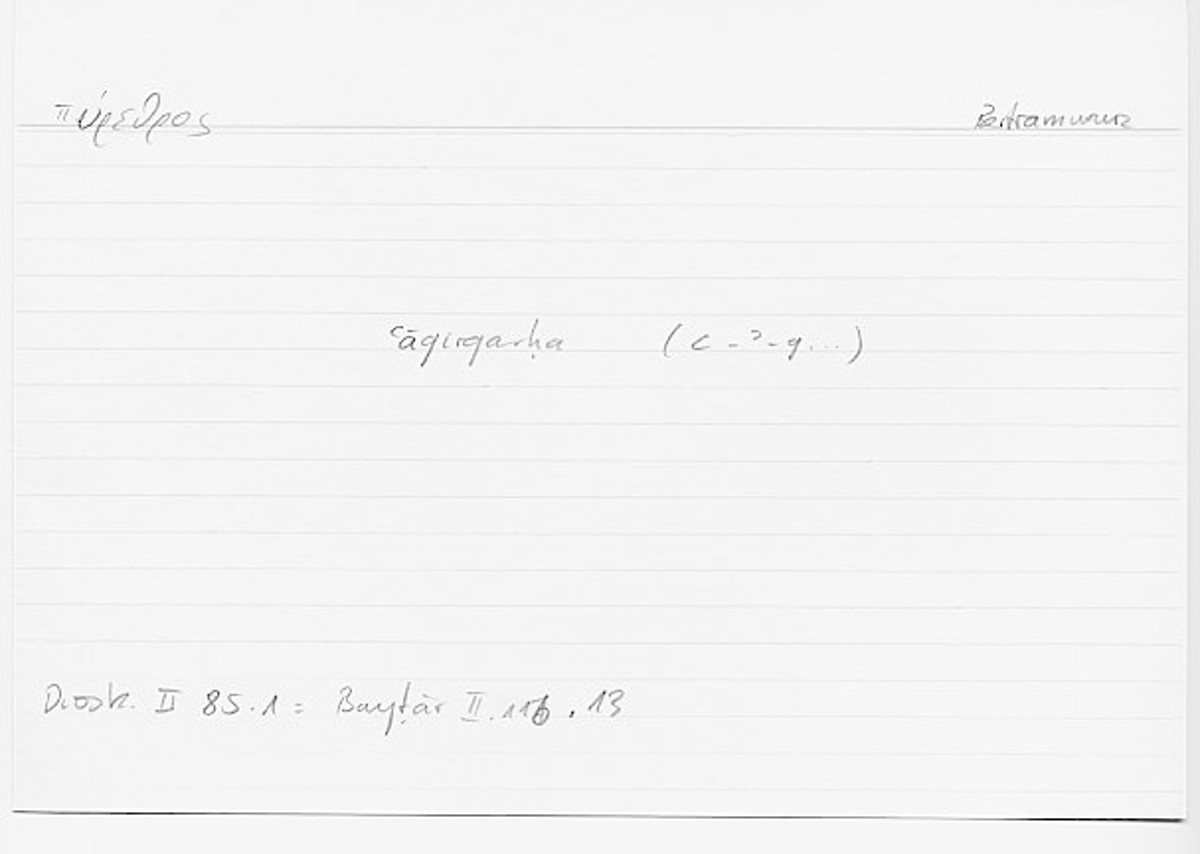 πύρεθρος Bertramwurz
ʿāqirqarḥa (ʿ-ʾ-q...)
Diosk. II 85.1 = Bayṭār II.116.13